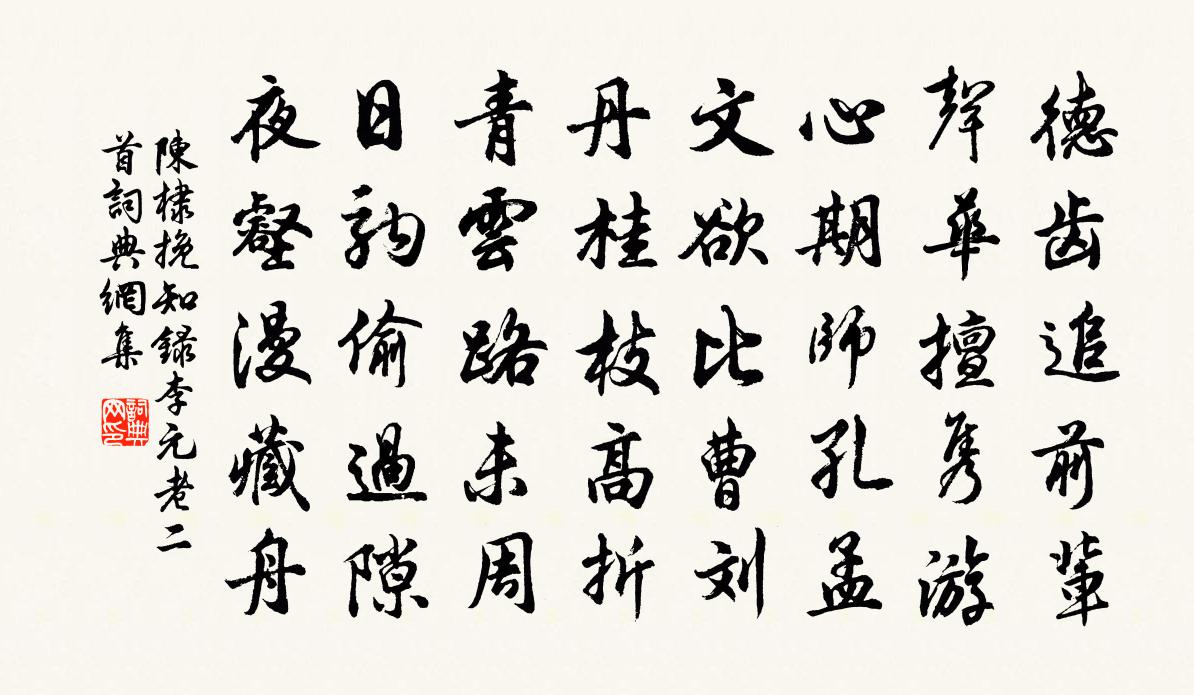 德齿追前輩
聲華擅隽游
心期師孔孟
文欲比曹刘
丹桂枝高折
青雲路未周
日駒偷過隙
夜壑漫藏舟
陳棣挽知録李元老二
首詞典網集
詞典网印